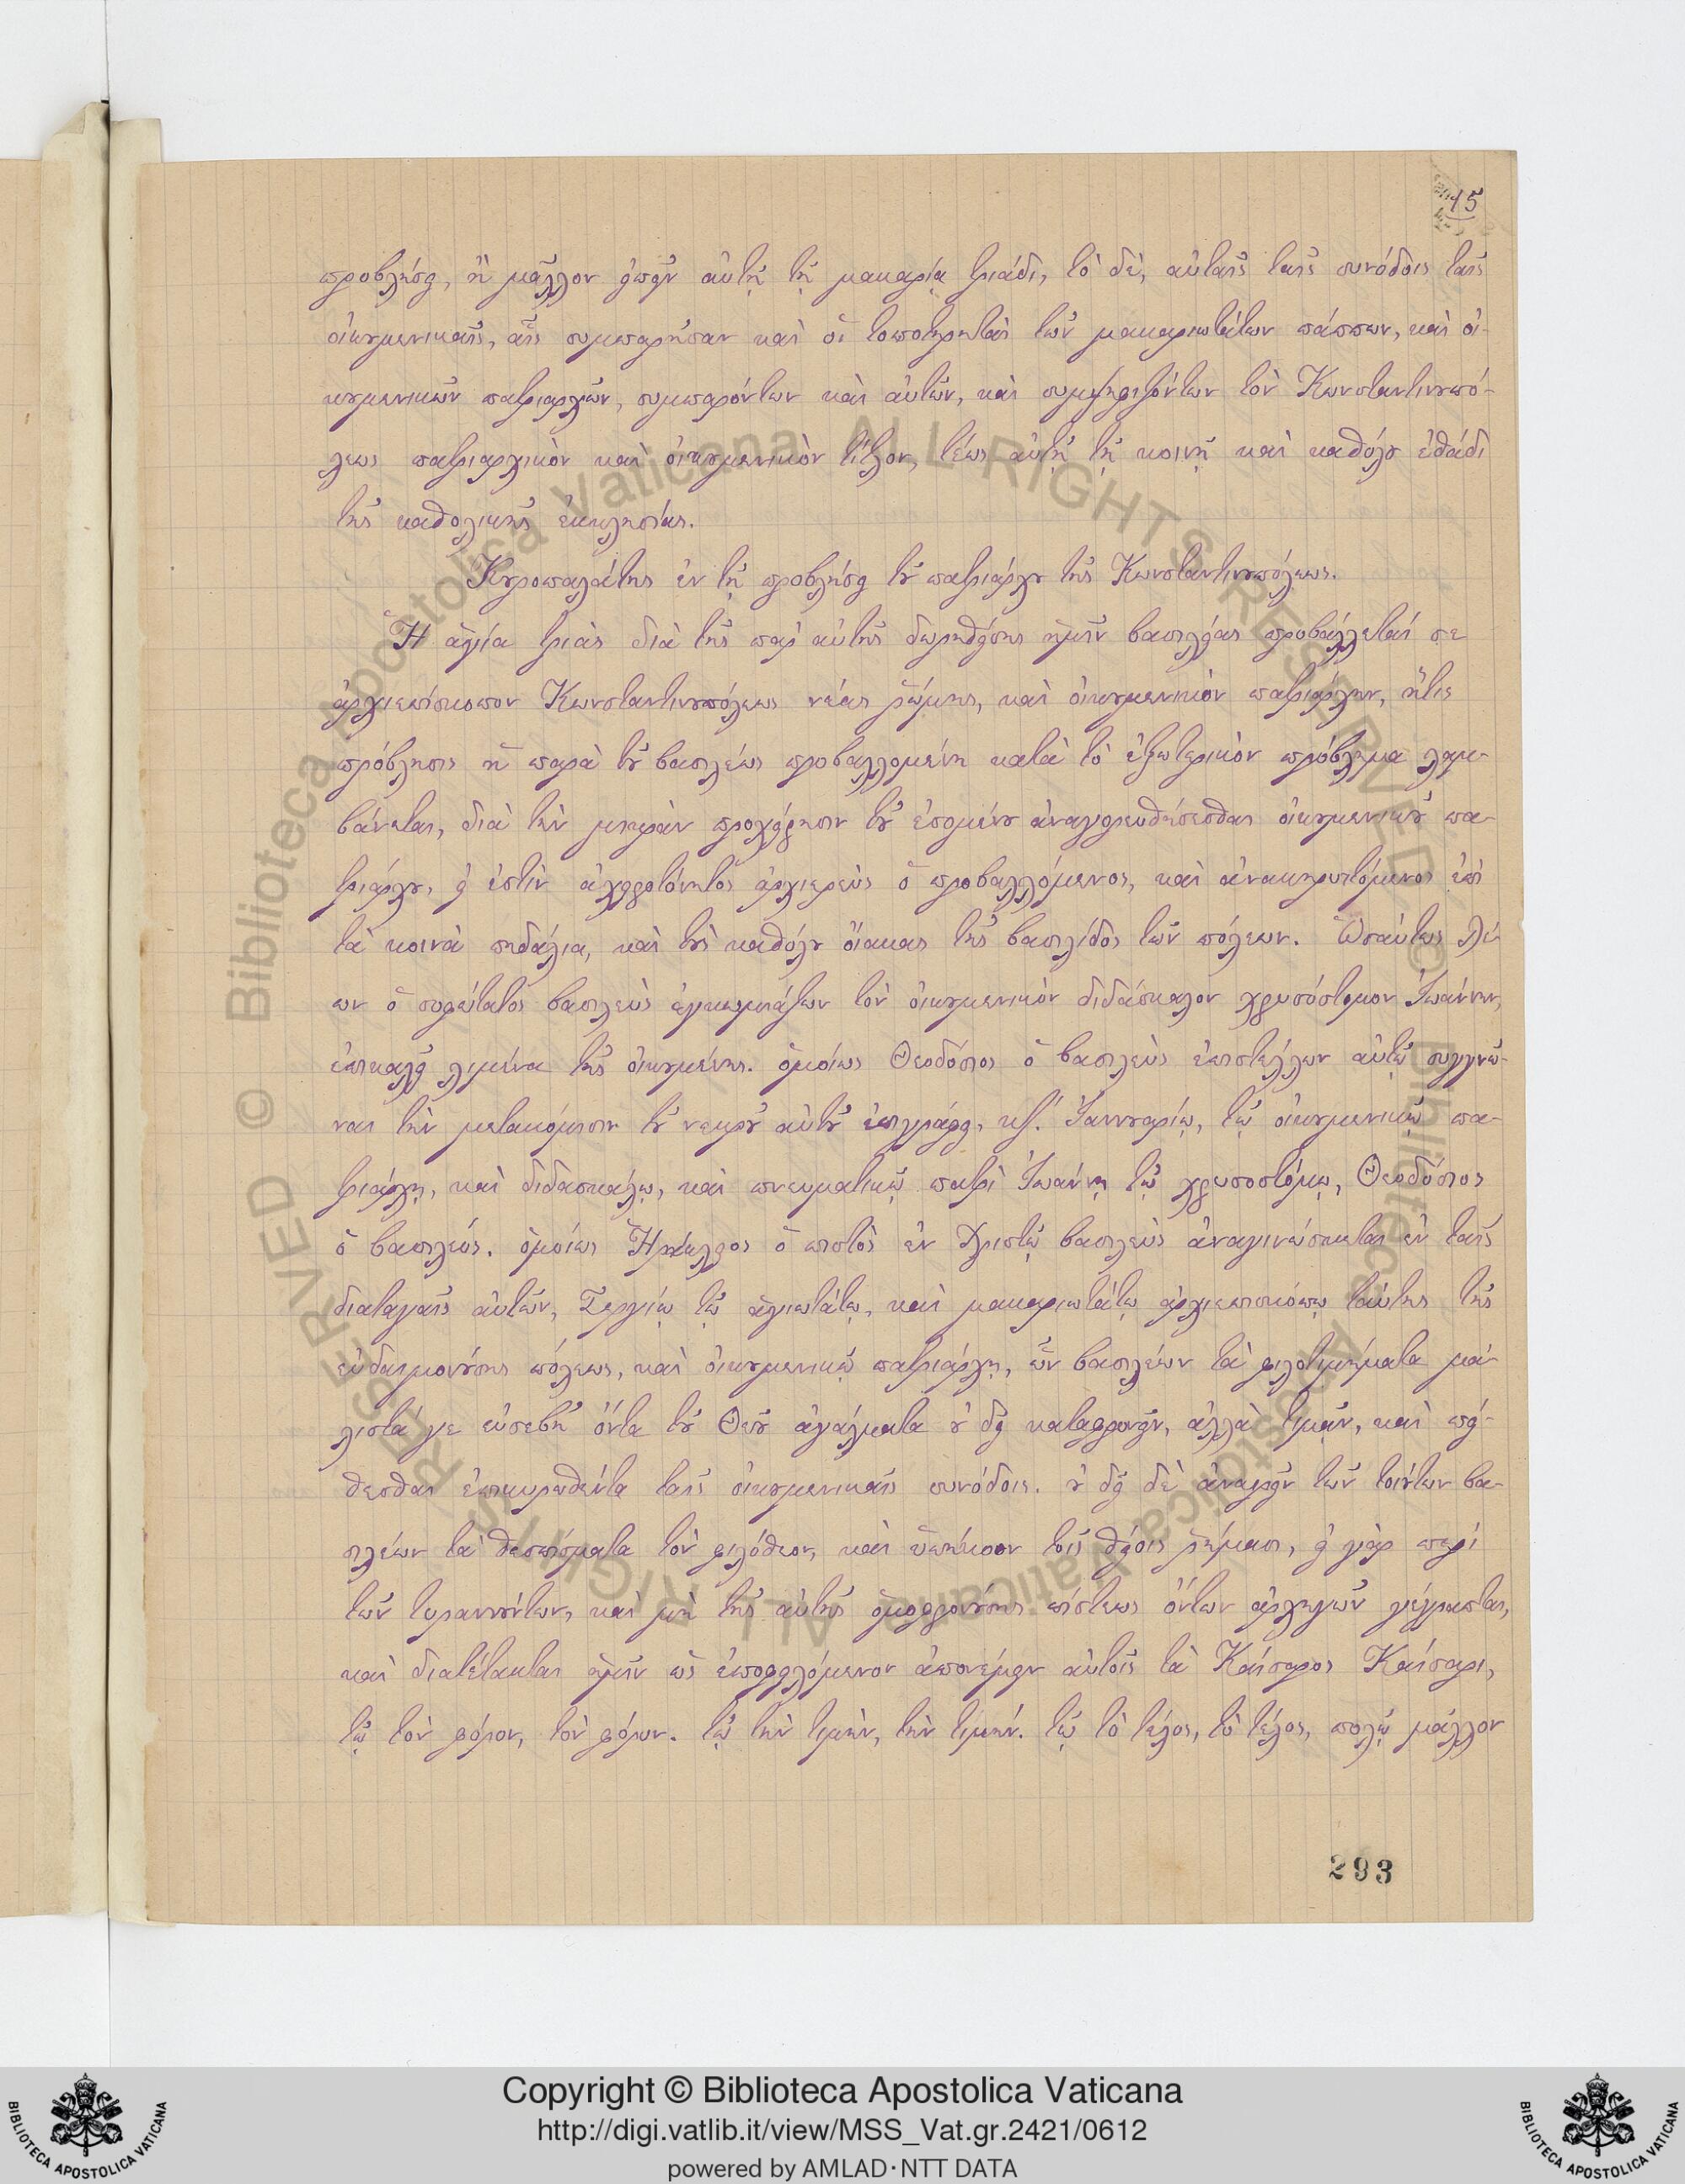 15
προβλήσει, ἢ μᾶλλον εἰπεῖν αὐτῇ τῇ μακαρίᾳ τριάδι, τὸ δὲ, αὐταῖς ταῖς συνόδοις ταῖς
οἰκουμενικαῖς, αἷς συμπαρῆσαν καὶ οἱ τοποτηρηταὶ τῶν μακαριωτάτων πάππων, καὶ οἰ-
κουμενικῶν πατριαρχῶν, συμπαρόντων καὶ αὐτῶν, καὶ συμψηφιζόντων τὸν Κωνσταντινουπό-
λεως πατριαρχικὸν καὶ οἰκουμενικὸν τίτλον, τέως αὐτῇ τῇ κοινῇ καὶ καθόλου ἑβδάδι
τῆς καθολικῆς ἐκκλησίας.
Κυροπαλάτης ἐν τῇ προβλήσει τοῦ πατριάρχου τῆς Κωνσταντινουπόλεως.
Ἡ ἁγία τριὰς διὰ τῆς παρ' αὐτῆς δωρηθείσης ἡμῖν βασιλείας προβάλλεταί σε
ἀρχιεπίσκοπον Κωνσταντινουπόλεως νέας ῥώμης, καὶ οἰκουμενικὸν πατριάρχην, ἥτις
πρόβλησις ἡ παρὰ τοῦ βασιλέως προβαλλομένη κατὰ τὸ ἐξωτερικὸν πρόβλημα λαμ-
βάνεται, διὰ τὴν μικρὰν προχείρησιν τοῦ ἑπομένου ἀναγορευθήσεσθαι οἰκουμενικοῦ πα-
τριάρχου, εἰ ἐστὶν ἀχειροτόνητος ἀρχιερεὺς ὁ προβαλλόμενος, καὶ ἀνακηρυττόμενος ἐπὶ
τὰ κοινὰ πηδάλια, καὶ τοὺς καθόλου οἴακας τῆς βασιλίδος τῶν πόλεων. Ὡσαύτως λέ-
ων ὁ σοφώτατος βασιλεὺς ἐγκωμιάζων τὸν οἰκουμενικὸν διδάσκαλον χρυσόστομον Ἰωάννην,
ἐπικαλεῖ λιμένα τῆς οἰκουμένης. ὁμοίως Θεοδόσιος ὁ βασιλεὺς ἐπιστέλλων αὐτῷ συγγνῶ-
ναι τὴν μετακόμισιν τοῦ νεκροῦ αὐτοῦ ἐπιγράφει, κζ΄. Ἰαννουαρίῳ, τῷ οἰκουμενικῷ πα-
τριάρχῃ, καὶ διδασκάλῳ, καὶ πνευματικῷ πατρὶ Ἰωάννῃ τῷ χρυσοστόμῳ, Θεοδόσιος
ὁ βασιλεύς. ὁμοίως Ἡράκλειος ὁ πιστὸς ἐν Χριστῷ βασιλεὺς ἀναγινώσκεται ἐν ταῖς
διαταγαῖς αὐτῶν, Σεργίῳ τῷ ἁγιωτάτῳ, καὶ μακαριωτάτῳ ἀρχιεπισκόπῳ ταύτης τῆς
εὐδαιμονούσης πόλεως, καὶ οἰκουμενικῷ πατριάρχῃ, ὧν βασιλέων τὰ φιλοτιμήματα μά-
λιστά γε εὐσεβῆ ὄντα τοῦ Θεοῦ ἀγάλματα οὐ δεῖ καταφρονεῖν, ἀλλὰ τιμᾷν, καὶ πεί-
θεσθαι ἐπικυρωθέντα ταῖς οἰκουμενικαῖς συνόδοις. οὐ δεῖ δὲ ἀναιρεῖν τῶν τοιούτων βα-
σιλέων τὰ θεσπίσματα τὸν φιλόθεον, καὶ ὑπήκοον τοῖς θείοις ῥήμασι, εἰ γὰρ περὶ
τῶν τυραννούντων, καὶ μὴ τῆς αὐτῆς ὁμοφρονούσης πίστεως ὄντων ἀρχηγῶν γέγραπται,
καὶ διατέτακται ἡμῖν ὡς ἐποφειλόμενον ἀπονέμειν αὐτοῖς τὰ Καίσαρος Καίσαρι,
τῷ τὸν φόρον, τὸν φόρον. τῷ τὴν τιμὴν, τὴν τιμήν. τῷ τὸ τέλος, τὸ τέλος, πολλῷ μάλλον
293
Copyright © Biblioteca Apostolica Vaticana
http://digi.vatlib.it/view/MSS_Vat.gr.2421/0612
powered by AMLAD·NTT DATA
BIBLIOTECA APOSTOLICA VATICANA
BIBLIOTECA APOSTOLICA VATICANA